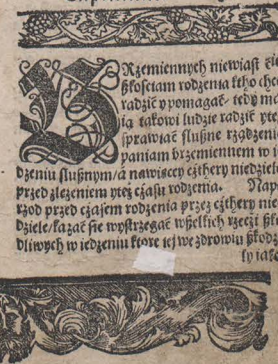 BRzemiennych niewiast
szkościam rodzenia ktho chce
radzić y pomagać / tedy ma
ią takowi ludzie radzić ytez
sprawiać słuszne rządzeni
paniam brzemiennem w ie
dzeniu słusznym / á nawięcey cżthery niedziele
przed zleżeniem yteż czasu rodzenia. Nay
rzod przed czasem rodzenia przez cżthery nie
dziele / kazać sie wystrzegać wszelkich rzeczi szko
dliwych w iedzeniu ktore iey we zdrowiu szkodz
ły iako